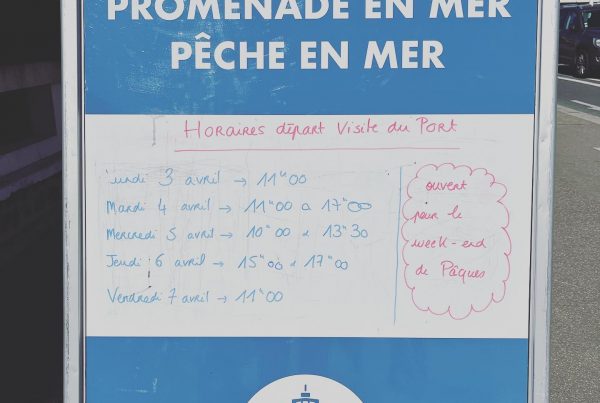 PROMENADE EN MER
PÊCHE EN MER
Horaires départ Visite du Port
Lundi 3 avril → 11h00
Mardi 4 avril → 11h00 à 17h00
Mercredi 5 avril → 10h00 à 13h30
Jeudi 6 avril → 15h00 à 17h00
Vendredi 7 avril → 11h00
ouvert
pour le
week-end
de Pâques